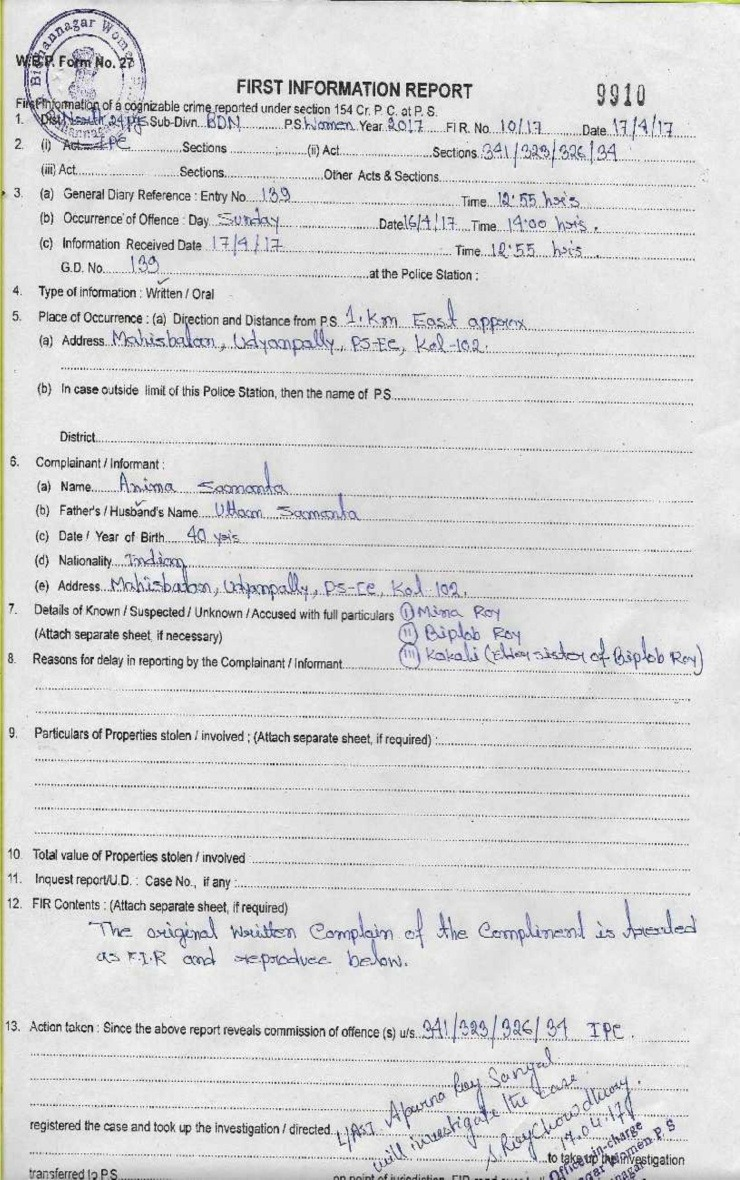 Bidhannagar Women
W.B.P. Form No. 27
FIRST INFORMATION REPORT
9910
First Information of a cognizable crime reported under section 154 Cr. P. C. at P. S.
1. Dist North 24 Pgs Sub-Divn. BDN P.S Women Year 2017 F I R. No. 10/17 Date 17/4/17
2. (i) Act IPC Sections (ii) Act Sections 341/323/326/34
(iii) Act Sections Other Acts & Sections
3. (a) General Diary Reference : Entry No. 139 Time 12:55 hrs
(b) Occurrence of Offence : Day Sunday Date 16/4/17 Time 14:00 hrs.
(c) Information Received Date 17/4/17 Time 12:55 hrs.
G.D. No. 139 at the Police Station :
4. Type of information : Written / Oral
5. Place of Occurrence : (a) Direction and Distance from P.S. 1. Km East approx
(a) Address Mahisbatan, Udyanpally, PS-EC, Kol-102.
(b) In case outside limit of this Police Station, then the name of P.S.
District
6. Complainant / Informant :
(a) Name Anima Samanta
(b) Father's / Husband's Name Uttam Samanta
(c) Date / Year of Birth 40 yrs
(d) Nationality Indian
(e) Address Mahisbatan, Udyanpally, PS-EC, Kol-102.
7. Details of Known / Suspected / Unknown / Accused with full particulars (i) Mina Roy
(Attach separate sheet, if necessary) (ii) Biplob Roy
8. Reasons for delay in reporting by the Complainant / Informant (iii) Kakali (elder sister of Biplob Roy)
9. Particulars of Properties stolen / involved ; (Attach separate sheet, if required) :
10. Total value of Properties stolen / involved
11. Inquest report/U.D. : Case No., if any :
12. FIR Contents : (Attach separate sheet, if required)
The original written Complain of the Compliment is treated
as F.I.R and reproduce below.
13. Action taken : Since the above report reveals commission of offence (s) u/s. 341/323/326/34 IPC.
registered the case and took up the investigation / directed L/ASI Aparna Roy Sanyal
will investigate the case.
S. RoyChowdhury.
17.04.17
to take up the investigation
Officer-in-charge
Women P.S
transferred to P.S.